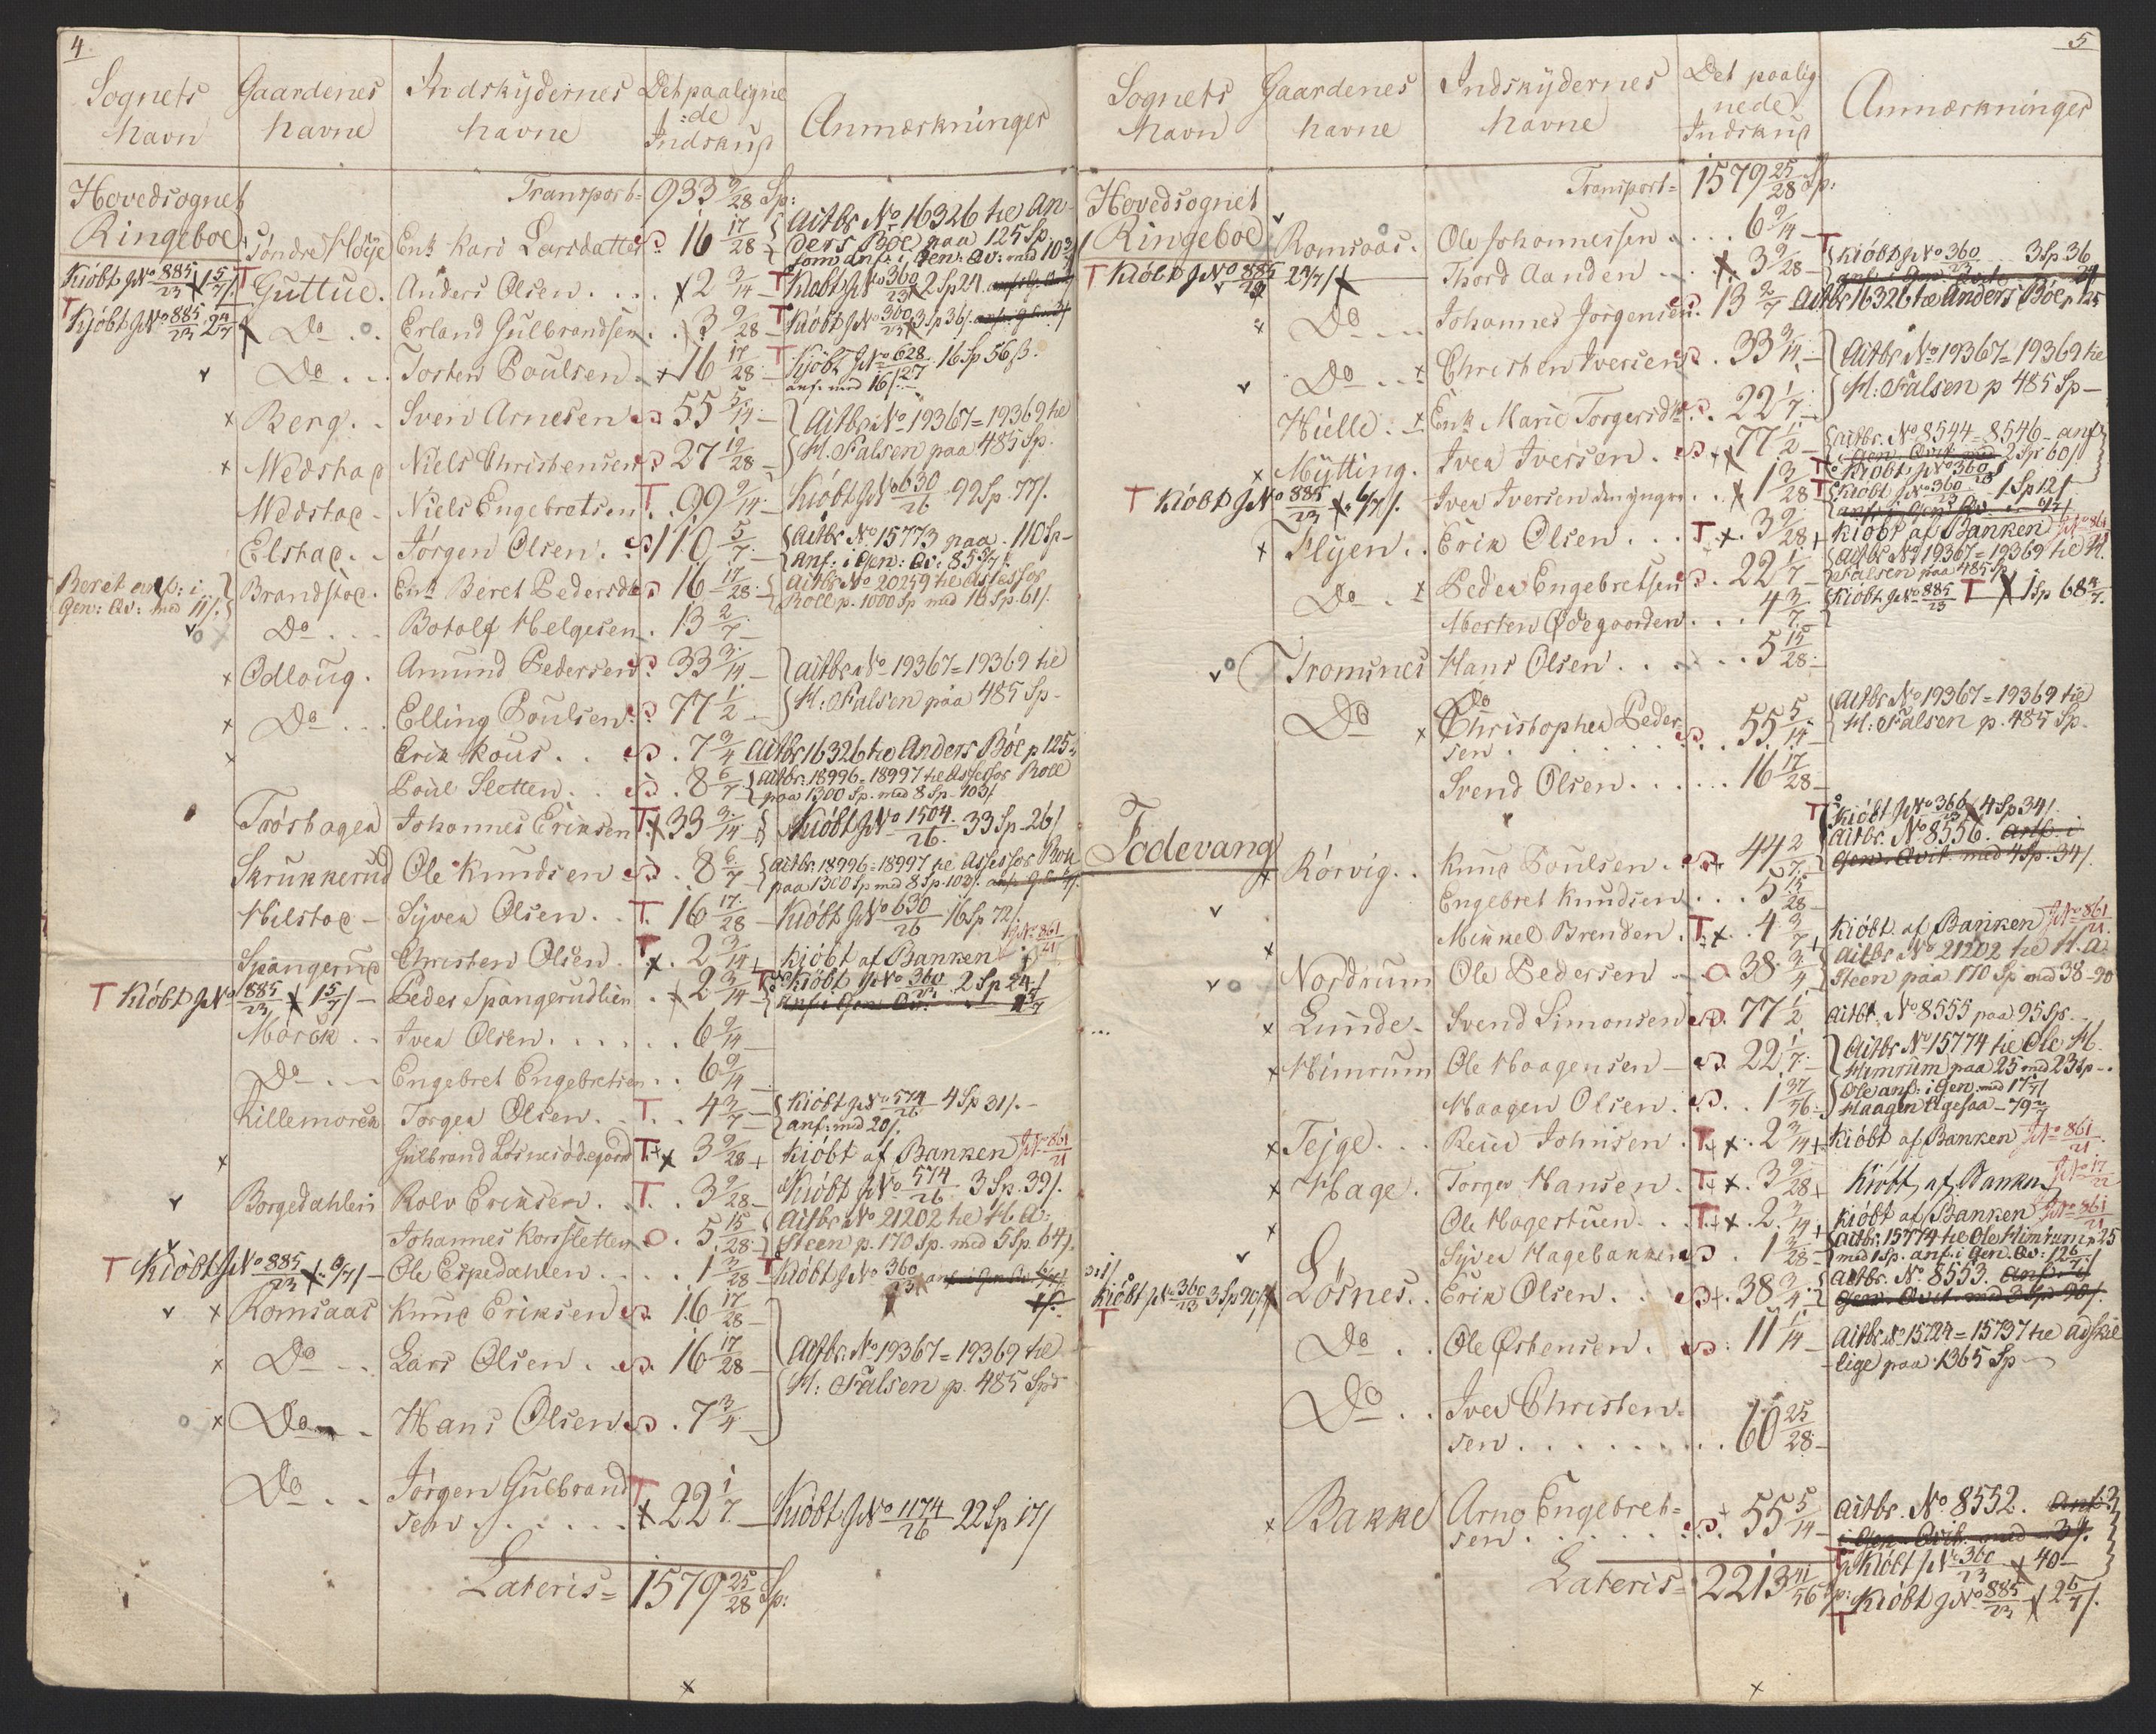 4
Sognets Navn | Gaardenes Navne | Indskydernes Navne | Det paalignede Indskud | Anmærkninger
Hovedsognet Ringeboe
Transport = 933 9/28 Sp:
Søndre Høÿe | Enk. Kari Larsdatter | 16 17/28 | Aitbr No 16326 til Anders Böe paa 125 Sp
Kiöbt J No 885/23 1 5/7/ | Guttue. | Anders Olsen | 2 3/14 | Kiöbt J No 360/23 2 Sp 24
Kjöbt J No 885/23 2 4/7 | Do | Erland Gulbrandsen | 3 9/28 | Kiöbt J No 360/23 3 Sp 36/
Do | Tosten Poulsen | 16 17/28 | Kjöbt J No 628/27 16 Sp 56 ß.
anf. med 16/.
Berg. | Sven Arnesen | 55 5/14 | Aitbr No 19367=19369 til
Wedstad | Niels Christensen | 27 19/28 | H. Falsen paa 485 Sp.
Wedstad | Niels Engebretsen | T. 99 9/14 | Kiöbt J No 630/26 99 Sp. 77/.
Elstad | Jörgen Olsen | 110 5/7 | Aitbr No 15773 paa 110 Sp
Anf: i Gen: Qv: 85 5/7/.
Beret anf: i Gen: Qv: med 11/. | Brandstad. | Enk Beret Pedersdr | 16 17/28 | Aitbr No 20259 til Assessor
Roll p. 1000 Sp med 16 Sp. 61/.
Do | Botolf Helgesen | 13 2/7
Odloug. | Amund Pedersen | 33 3/14 | aitbr No 19367=19369 til
Do | Elling Poulsen | 77 1/2 | H: Falsen paa 485 Sp
Erik Kous | 7 3/4 | Aitbr 16326 til Anders Böe p 125
Poul Sletten | 8 6/7 | aitbr. 18996=18997 til Assessor Roll
paa 1300 Sp. med 8 Sp. 103/
Trøshagen | Johannes Eriksen | T. 33 3/14 | Kiöbt J No 1504/26 33 Sp 26/
Skrukkerud | Ole Knudsen | 8 6/7 | aitbr. 18996=18997 til Assessor Roll
paa 1300 Sp med 8 Sp. 102/.
Hilstad | Syver Olsen | T. 16 17/28 | Kiöbt J No 630/26 16 Sp 72/.
Spangerud | Christen Olsen | T. 2 3/14 | Kiöbt af Banken J No 861/21
T Kiöbt J No 885/23 1 5/7/ | Peder Spangerudlien | 2 3/14 | Kiöbt J No 360/23 2 Sp 24/
Morok | Iver Olsen | 6 9/14
Do | Engebret Engebretsen | 6 9/14
Killemoren | Torger Olsen | T. 4 3/7 | Kiöbt J No 574/26 4 Sp 31/.
anf: med 20/.
Gulbrand Losnesödegaard | T. 3 9/28 | Kiöbt af Banken J No 861/21
Borgedahlen | Rolv Eriksen | T. 3 9/28 | Kiöbt J No 574/26 3 Sp. 39/.
Johannes Korssletten | O. 5 15/28 | Aitbr No 21202 til H. A:
Steen p. 170 Sp. med 5 Sp. 64/.
T Kiöbt J No 885/23 6/7/ | Ole Espedahlen | 1 3/28 | Kiöbt J No 360/23
Romsaas | Knud Eriksen | 16 17/28
Do | Lars Olsen | 16 17/28 | Aitbr. No 19367=19369 til
Do | Hans Olsen | 7 3/4 | H: Falsen p. 485 Spd
Do | Jörgen Gulbrandsen | T 22 1/7 | Kiöbt J No 1174/26 22 Sp 17/
Lateris = 1579 25/28 Sp:
5
Sognets Navn | Gaardenes Navne | Indskydernes Navne | Det paalignede Indskud | Anmærkninger
Hovedsognet Ringeboe
Transport = 1579 25/28 Sp:
Romsaas. | Ole Johannessen | 6 9/14
T Kiöbt J No 885/23 2 4/7/ | Thord Aanden | 3 9/28 | T Kiöbt J No 360/23 3 Sp 36
Do | Johannes Jörgensen | 13 2/7 | Aitbr 16326 til Anders Böe p 125
Do | Christen Iversen | 33 3/14 | Aitbr No 19367=19369 til
Hielle. | Enk Marie Torgersdr | 22 1/7 | H: Falsen p 485 Sp
Mytting. | Iver Iversen | 77 1/2 | aitbr. No 8544=8546 anf
2 Sp 60/
Kiöbt J No 360/23
T Kiöbt J No 885/23 6/7/. | Iver Iversen den yngre | 1 3/28 | Kiöbt J No 360/23 1 Sp 12/
Flyen | Erik Olsen | T. 3 9/28 | Kiöbt af Banken J No 861
Do | Peder Engebretsen | 22 1/7 | aitbr No 19367=19369 til H.
Falsen paa 485 Sp
Morten Ødegaarden | 4 3/7 | Kiöbt J No 885/23 T 1 Sp 68 4/7.
Tromsnes | Hans Olsen | 5 15/28
Do | Do Christopher Pedersen | 55 5/14 | Aitbr No 19367=19369 til
H: Falsen p. 485 Sp.
Svend Olsen | 16 17/28
Fodevang
T Kiöbt J No 360/23 4 Sp 34/.
Rörvig | Knud Poulsen | 44 2/7 | Aitbr. No 8556. Anf. i
Gen. Qvit. med 4 Sp. 34/.
Engebret Knudsen | 5 15/28
Mikkel Brenden | T. 4 3/7 | Kiöbt af Banken J No 861/21
Nordrum | Ole Pedersen | O 38 3/4 | Aitbr No 21202 til H. A:
Steen paa 170 Sp med 38-90
Lunde | Svend Simonsen | 77 1/2 | aitbr. No 8555 paa 95 Sp.
Himrum | Ole Haagensen | 22 1/7 | Aitbr No 15774 til Ole H.
Himrum paa 25 med 23 Sp
Haagen Olsen | 1 37/56 | Ole anf: i Gen. med 17 1/7/
Haagen ligesaa - 79 2/7
Tejge | Reier Johnsen | T. 2 3/14 | Kiöbt af Banken J No 861/21
Hage. | Torger Hansen | T. 3 9/28 | Kiöbt af Banken J No 17/22
Ole Hagestuen | T. 2 3/14 | Kiöbt af Banken J No 861/21
Syver Hagebakken | 1 3/28 | aitbr. 15774 til Ole Himrum p 25
med 1 Sp. anf. i Gen. Qv: 12 6/7/
Kiöbt J No 360/23 3 Sp 90/ T | Losnes | Erik Olsen | 38 3/4 | aitbr. No 8553. Anf. i
Gen. Qvit. med 3 Sp 90/.
Do | Ole Østensen | 11 1/14 | Aitbr. No 15724=15737 til adskil
lige paa 1365 Sp
Do | Iver Christensen | 60 25/28
Bakke | Arno Engebretsen | 55 5/14 | aitbr. No 8552.
T Kiöbt J No 360/23 40
Lateris = 2213 41/56 Sp: | T Kiöbt J No 885/23 2 6/7/.